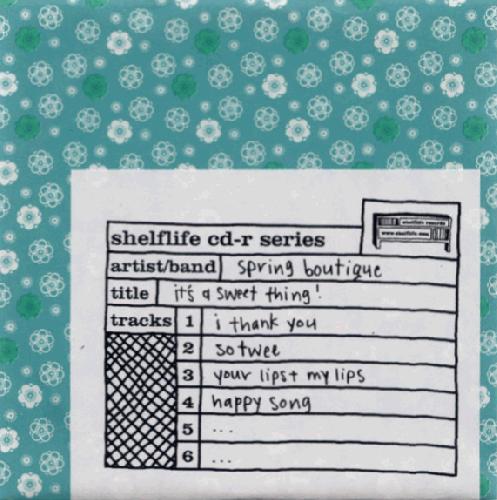 shelflife records
www.shelflife.com
shelflife cd-r series
artist/band spring boutique
title it's a sweet thing!
tracks 1 i thank you
2 so twee
3 your lips + my lips
4 happy song
5 ...
6 ...